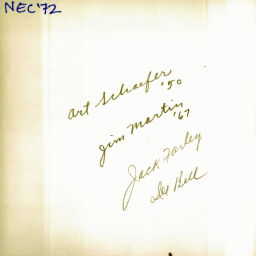 NEC'72
Art Schaefer
'50
Jim Martin
'67
Jack Farley
Bell